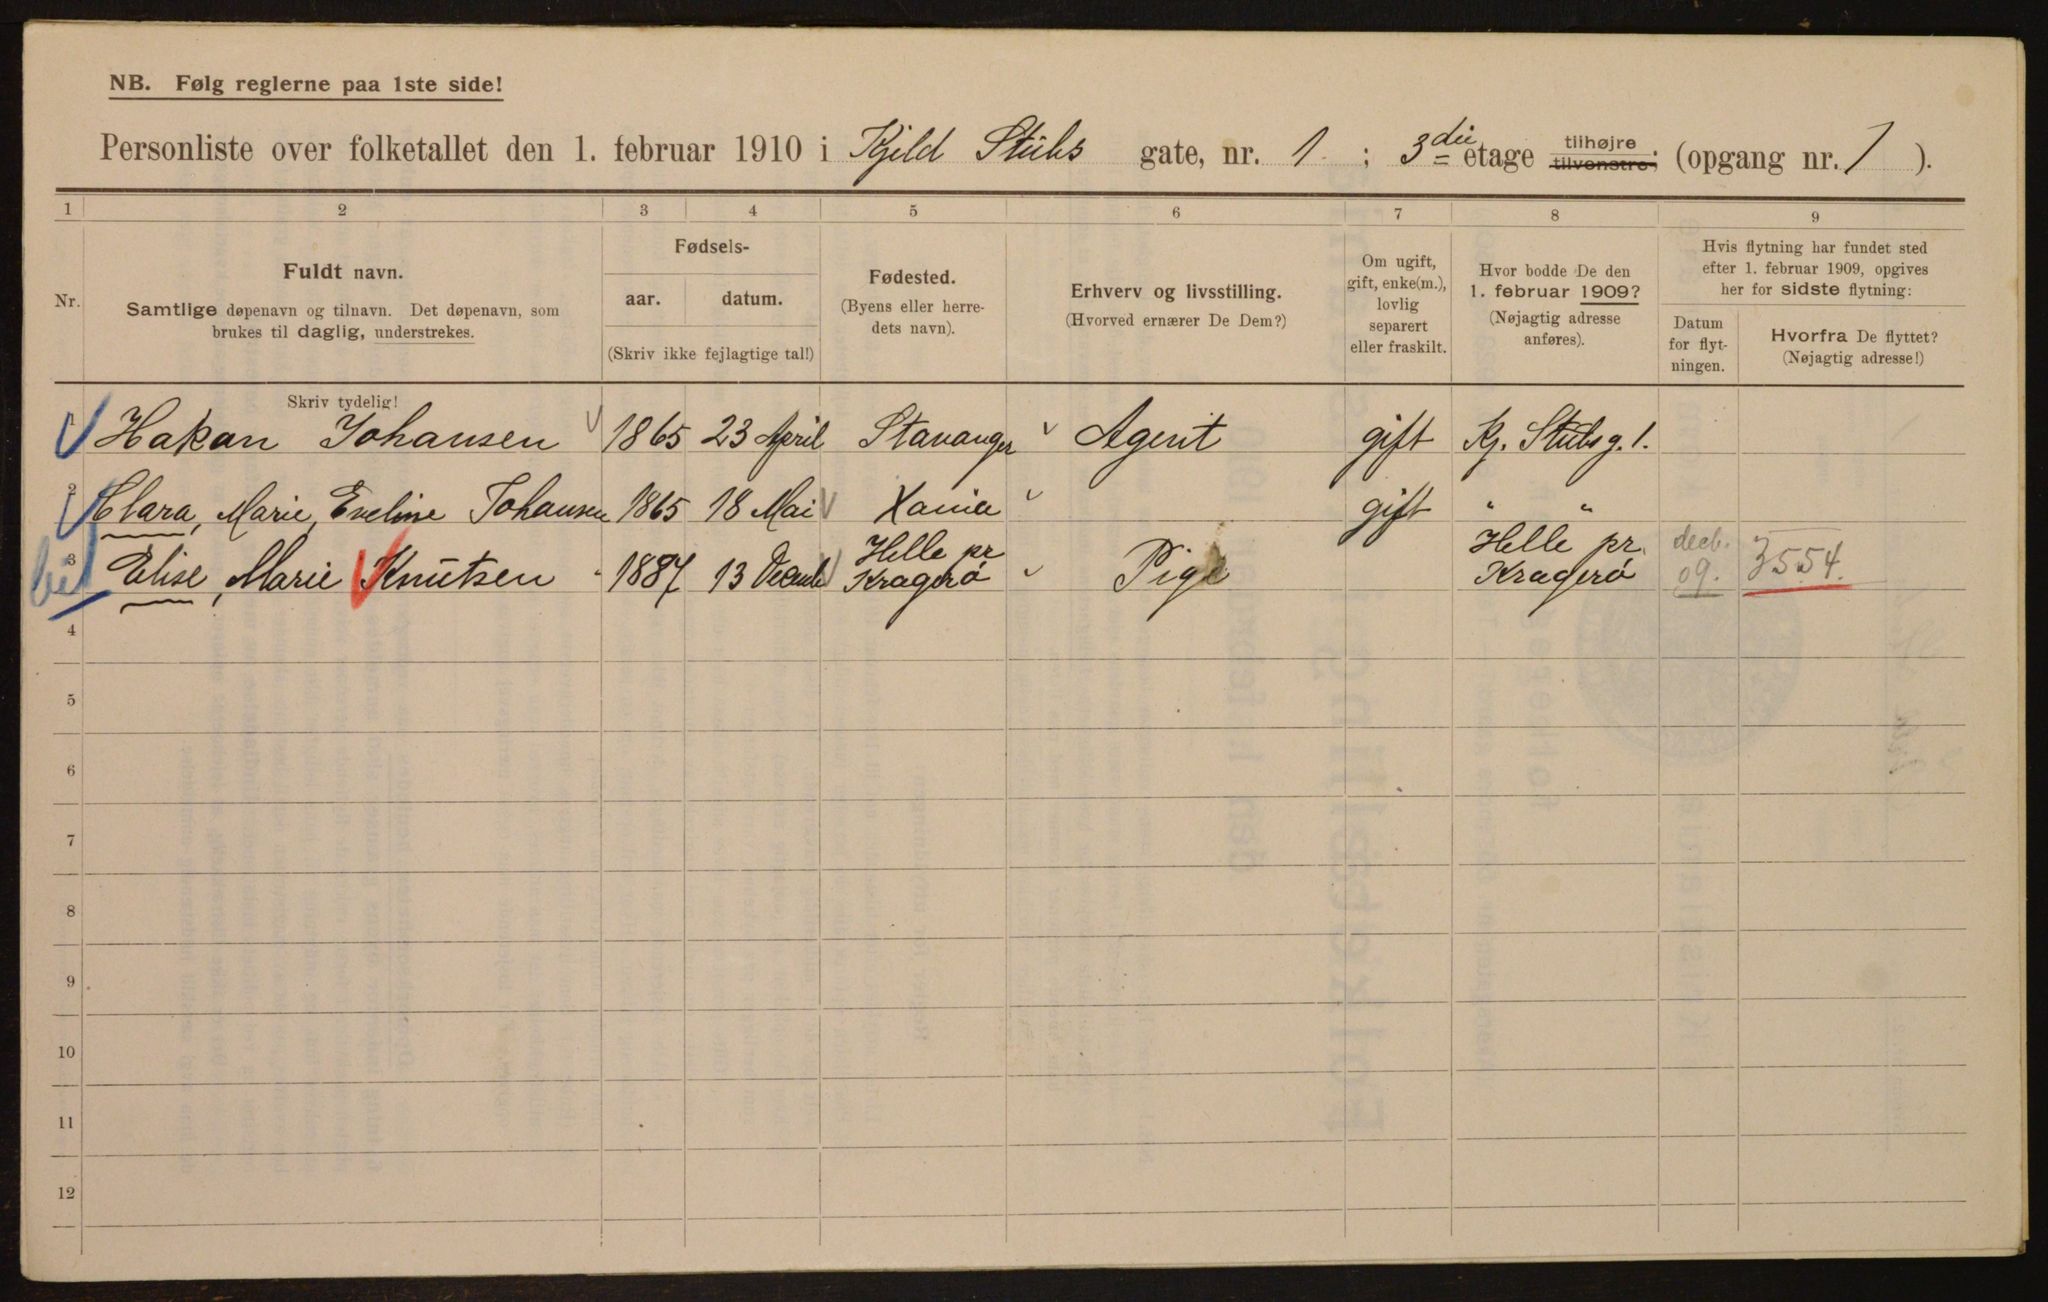 NB. Følg reglerne paa 1ste side!
Personliste over folketallet den 1. februar 1910 i Kjeld Stubs gate, nr. 1 ; 3die etage tilhøjre tilvenstre, (opgang nr. 1 ).
1 2 3 4 5 6 7 8 9
Nr.
Fuldt navn.
Samtlige døpenavn og tilnavn. Det døpenavn, som
brukes til daglig, understrekes.
Skriv tydelig!
Fødsels-
aar. datum.
(Skriv ikke fejlagtige tal!)
Fødested.
(Byens eller herre-
dets navn).
Erhverv og livsstilling.
(Hvorved ernærer De Dem?)
Om ugift,
gift, enke(m.),
lovlig
separert
eller fraskilt.
Hvor bodde De den
1. februar 1909?
(Nøjagtig adresse
anføres).
Hvis flytning har fundet sted
efter 1. februar 1909, opgives
her for sidste flytning:
Datum
for flyt-
ningen.
Hvorfra De flyttet?
(Nøjagtig adresse!)
1 Hakan Johansen 1865 23 April Stavanger Agent gift Kj. Stubs g. 1.
2 Clara, Marie, Eveline Johansen 1865 18 Mai Xania gift " "
3 Elise, Marie Knutsen 1887 13 Decemb Helle pr Kragerø Pige Helle pr. Kragerø decb. 09. 3554.
4
5
6
7
8
9
10
11
12